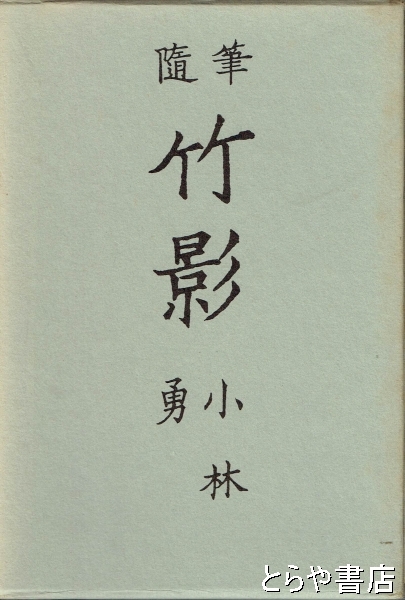 隨筆
竹影
小林
勇
とらや書店